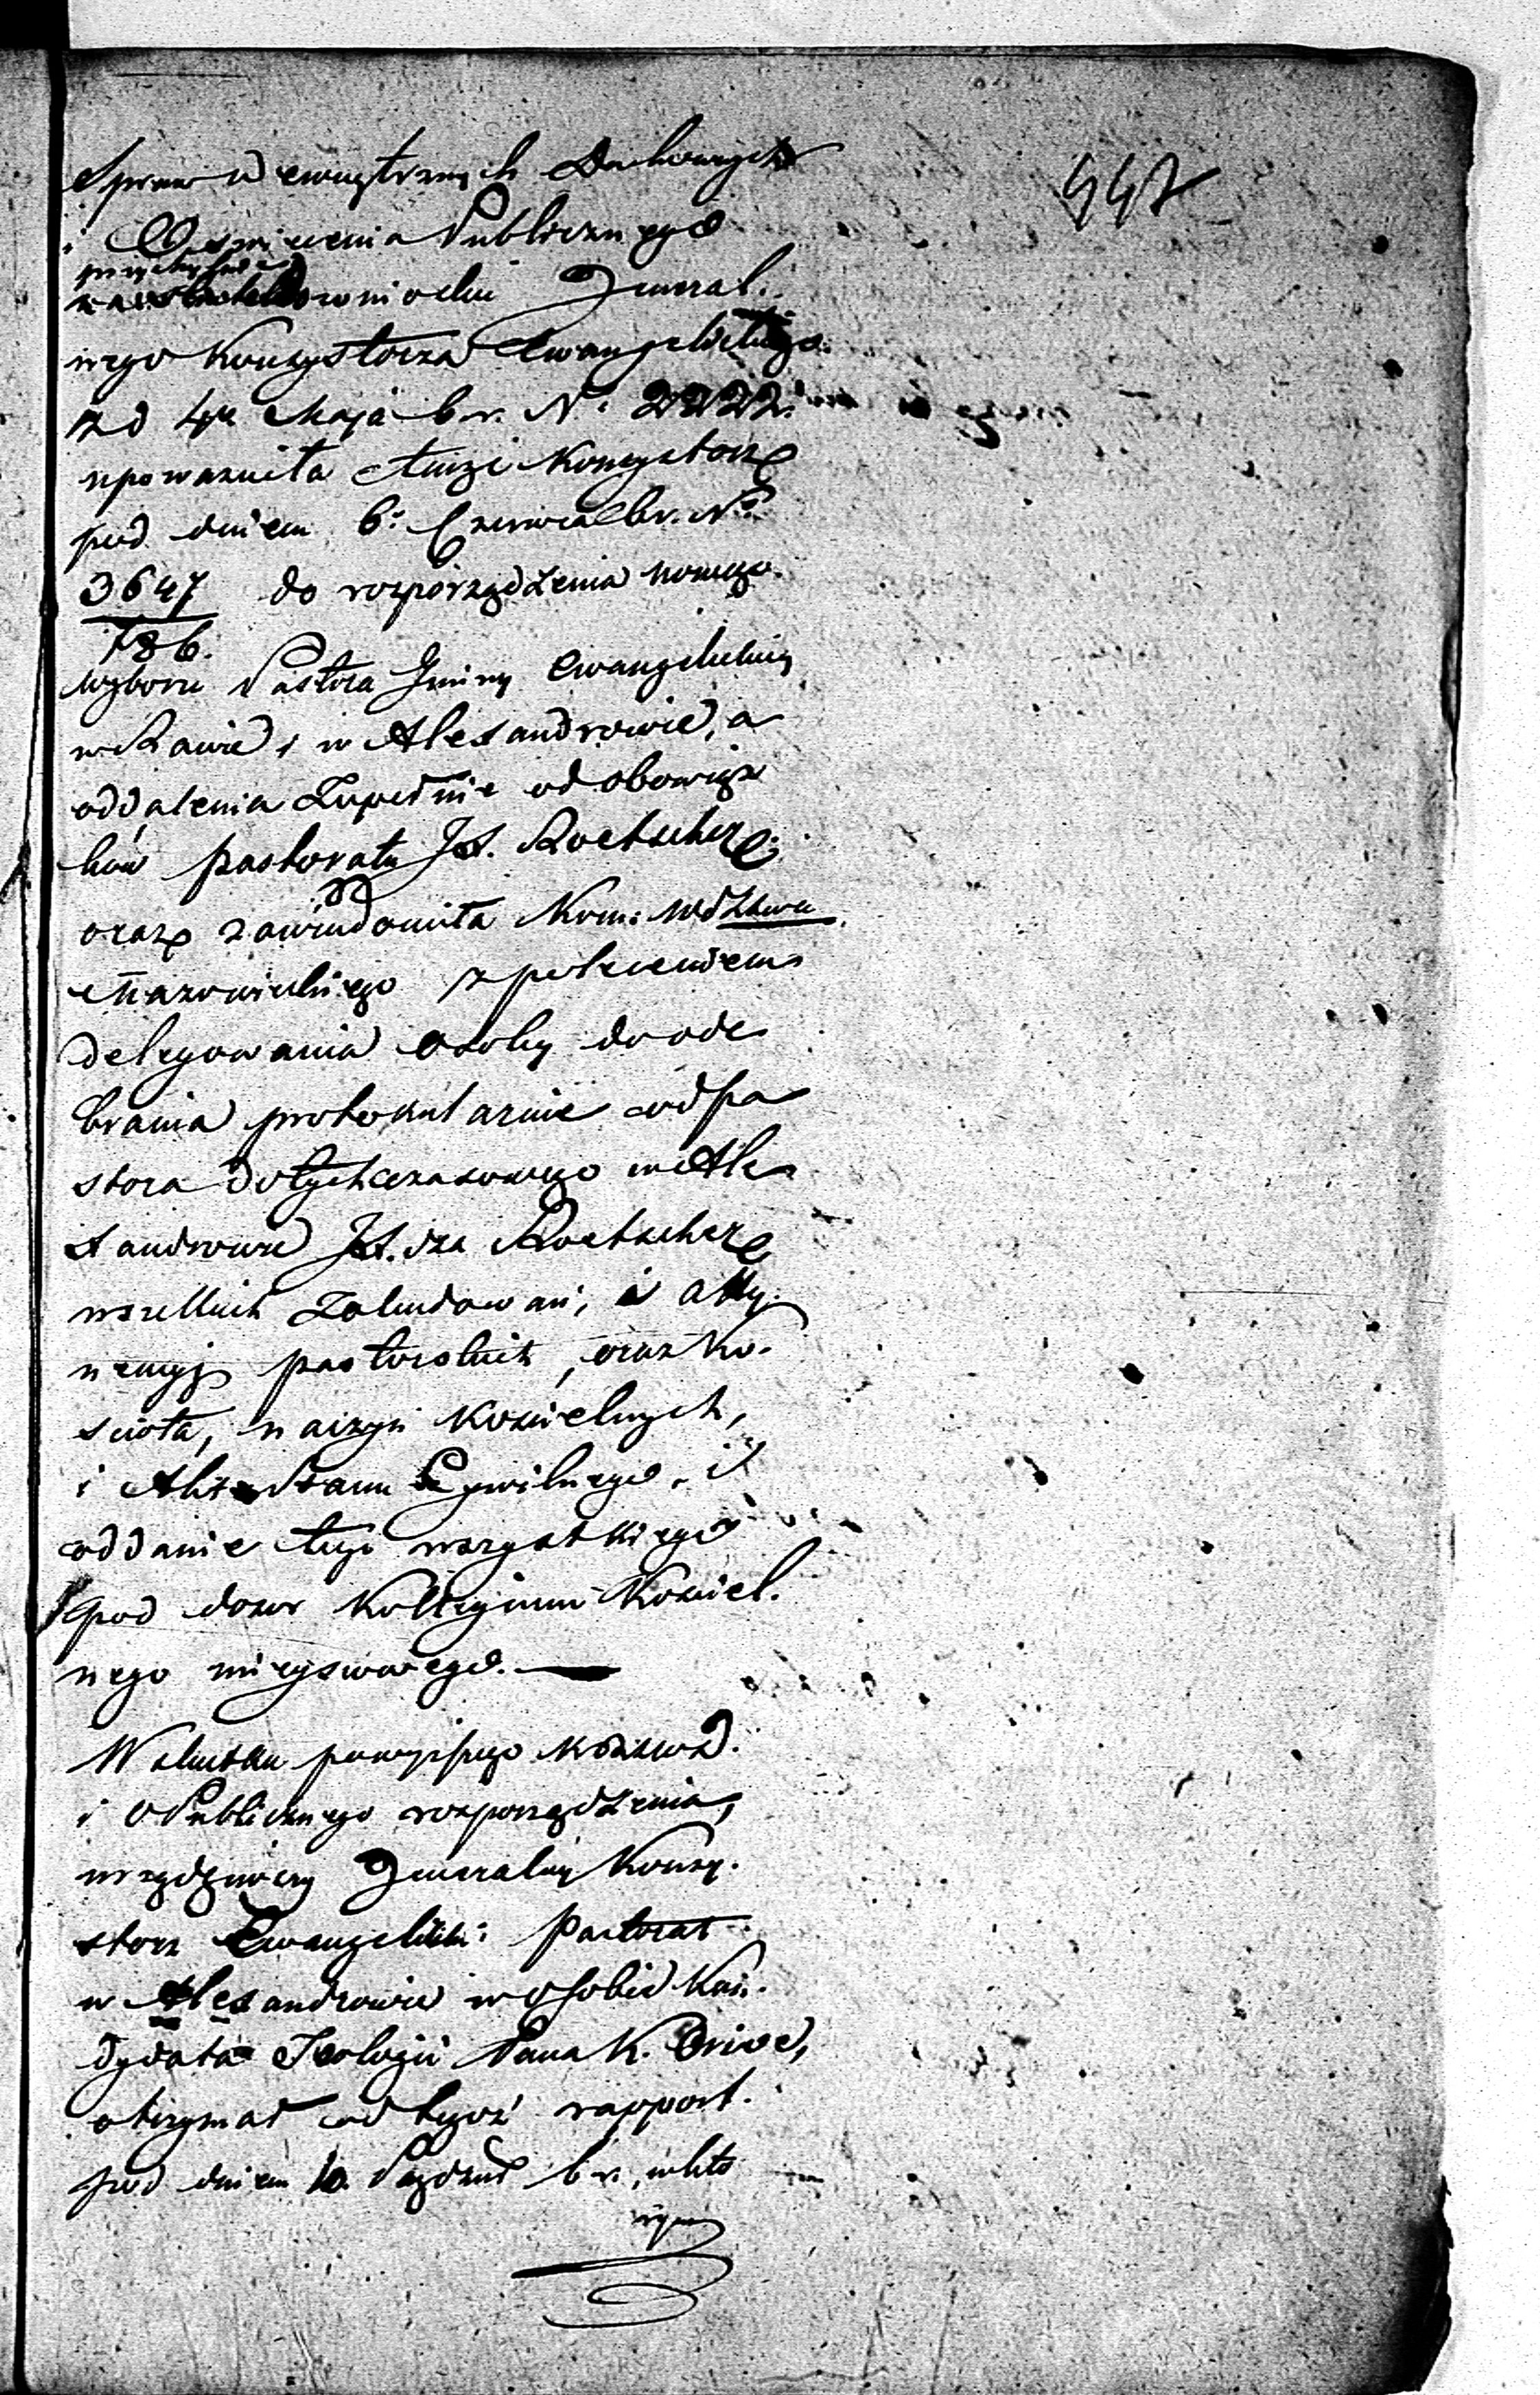 447
Spraw Wewnętrznych Duchownych
i Oswiecenia Publicznego
przychylnie
wniosku Jeneral.
nego Konsystorza Ewangelickiego
z d 4go Maja b. r. No 2222.
upoważniła tenże Konsystorz
pod dniem 6o Czerwca b. r. No
3647 do rozporządzenia nowego
786.
wyboru Pastora Gminy Ewangelickiej
w Rawie i w Alexandrowie, a
oddalenia zupełnie od obowiąz
ków pastoratu JX. Roetscher
oraz zawiadomiła Kom: Wdztwa
Mazowieckiego z poleceniem
delegowania osoby do ode
brania protokularnie od pa
stora dotychczasowego w Ale
xandrowie JX. dza Roetscher
wszelkich zabudowań, i atty
nencyj pastorskich, oraz Ko.
scioła, naczyń Kościelnych,
i Akt Stanu Cywilnego. i
oddanie tego wszystkiego
pod dozor Kollegium Kościel.
nego mieyscowego.
W skutku powyższego
i O Publicznego rozporządzenia,
urządziwszy Jeneralny Konsy.
storz Ewangelicki Pastorat
w Alexandrowie w osobie Kan.
dydata Teologii Pana K.
otrzymał od tegoż rapport.
pod dniem 10. Paździer b r, w któ
rym